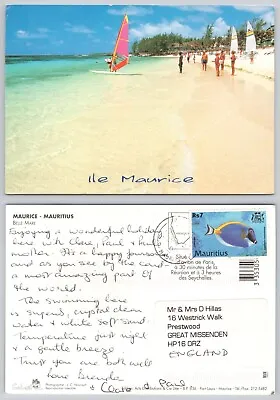 Ile Maurice
MAURICE - MAURITIUS
BELLE MARE
Enjoying a wonderful holiday
here with Clare, Paul &
mother. It's a happy
and as you see by the card
a most amazing part of
the world.
The swimming here
is superb, crystal clear
water & white soft sand.
Temperature just right
& a gentle breeze
Trust you are both well
love Brenda
Clare & Paul
Rs7
Mauritius
de Paris,
à 30 minutes de la
Réunion et à 3 heures
des Seychelles.
Mr & Mrs D Hillas
16 Westrick Walk
Prestwood
GREAT MISSENDEN
HP16 0RZ
ENGLAND